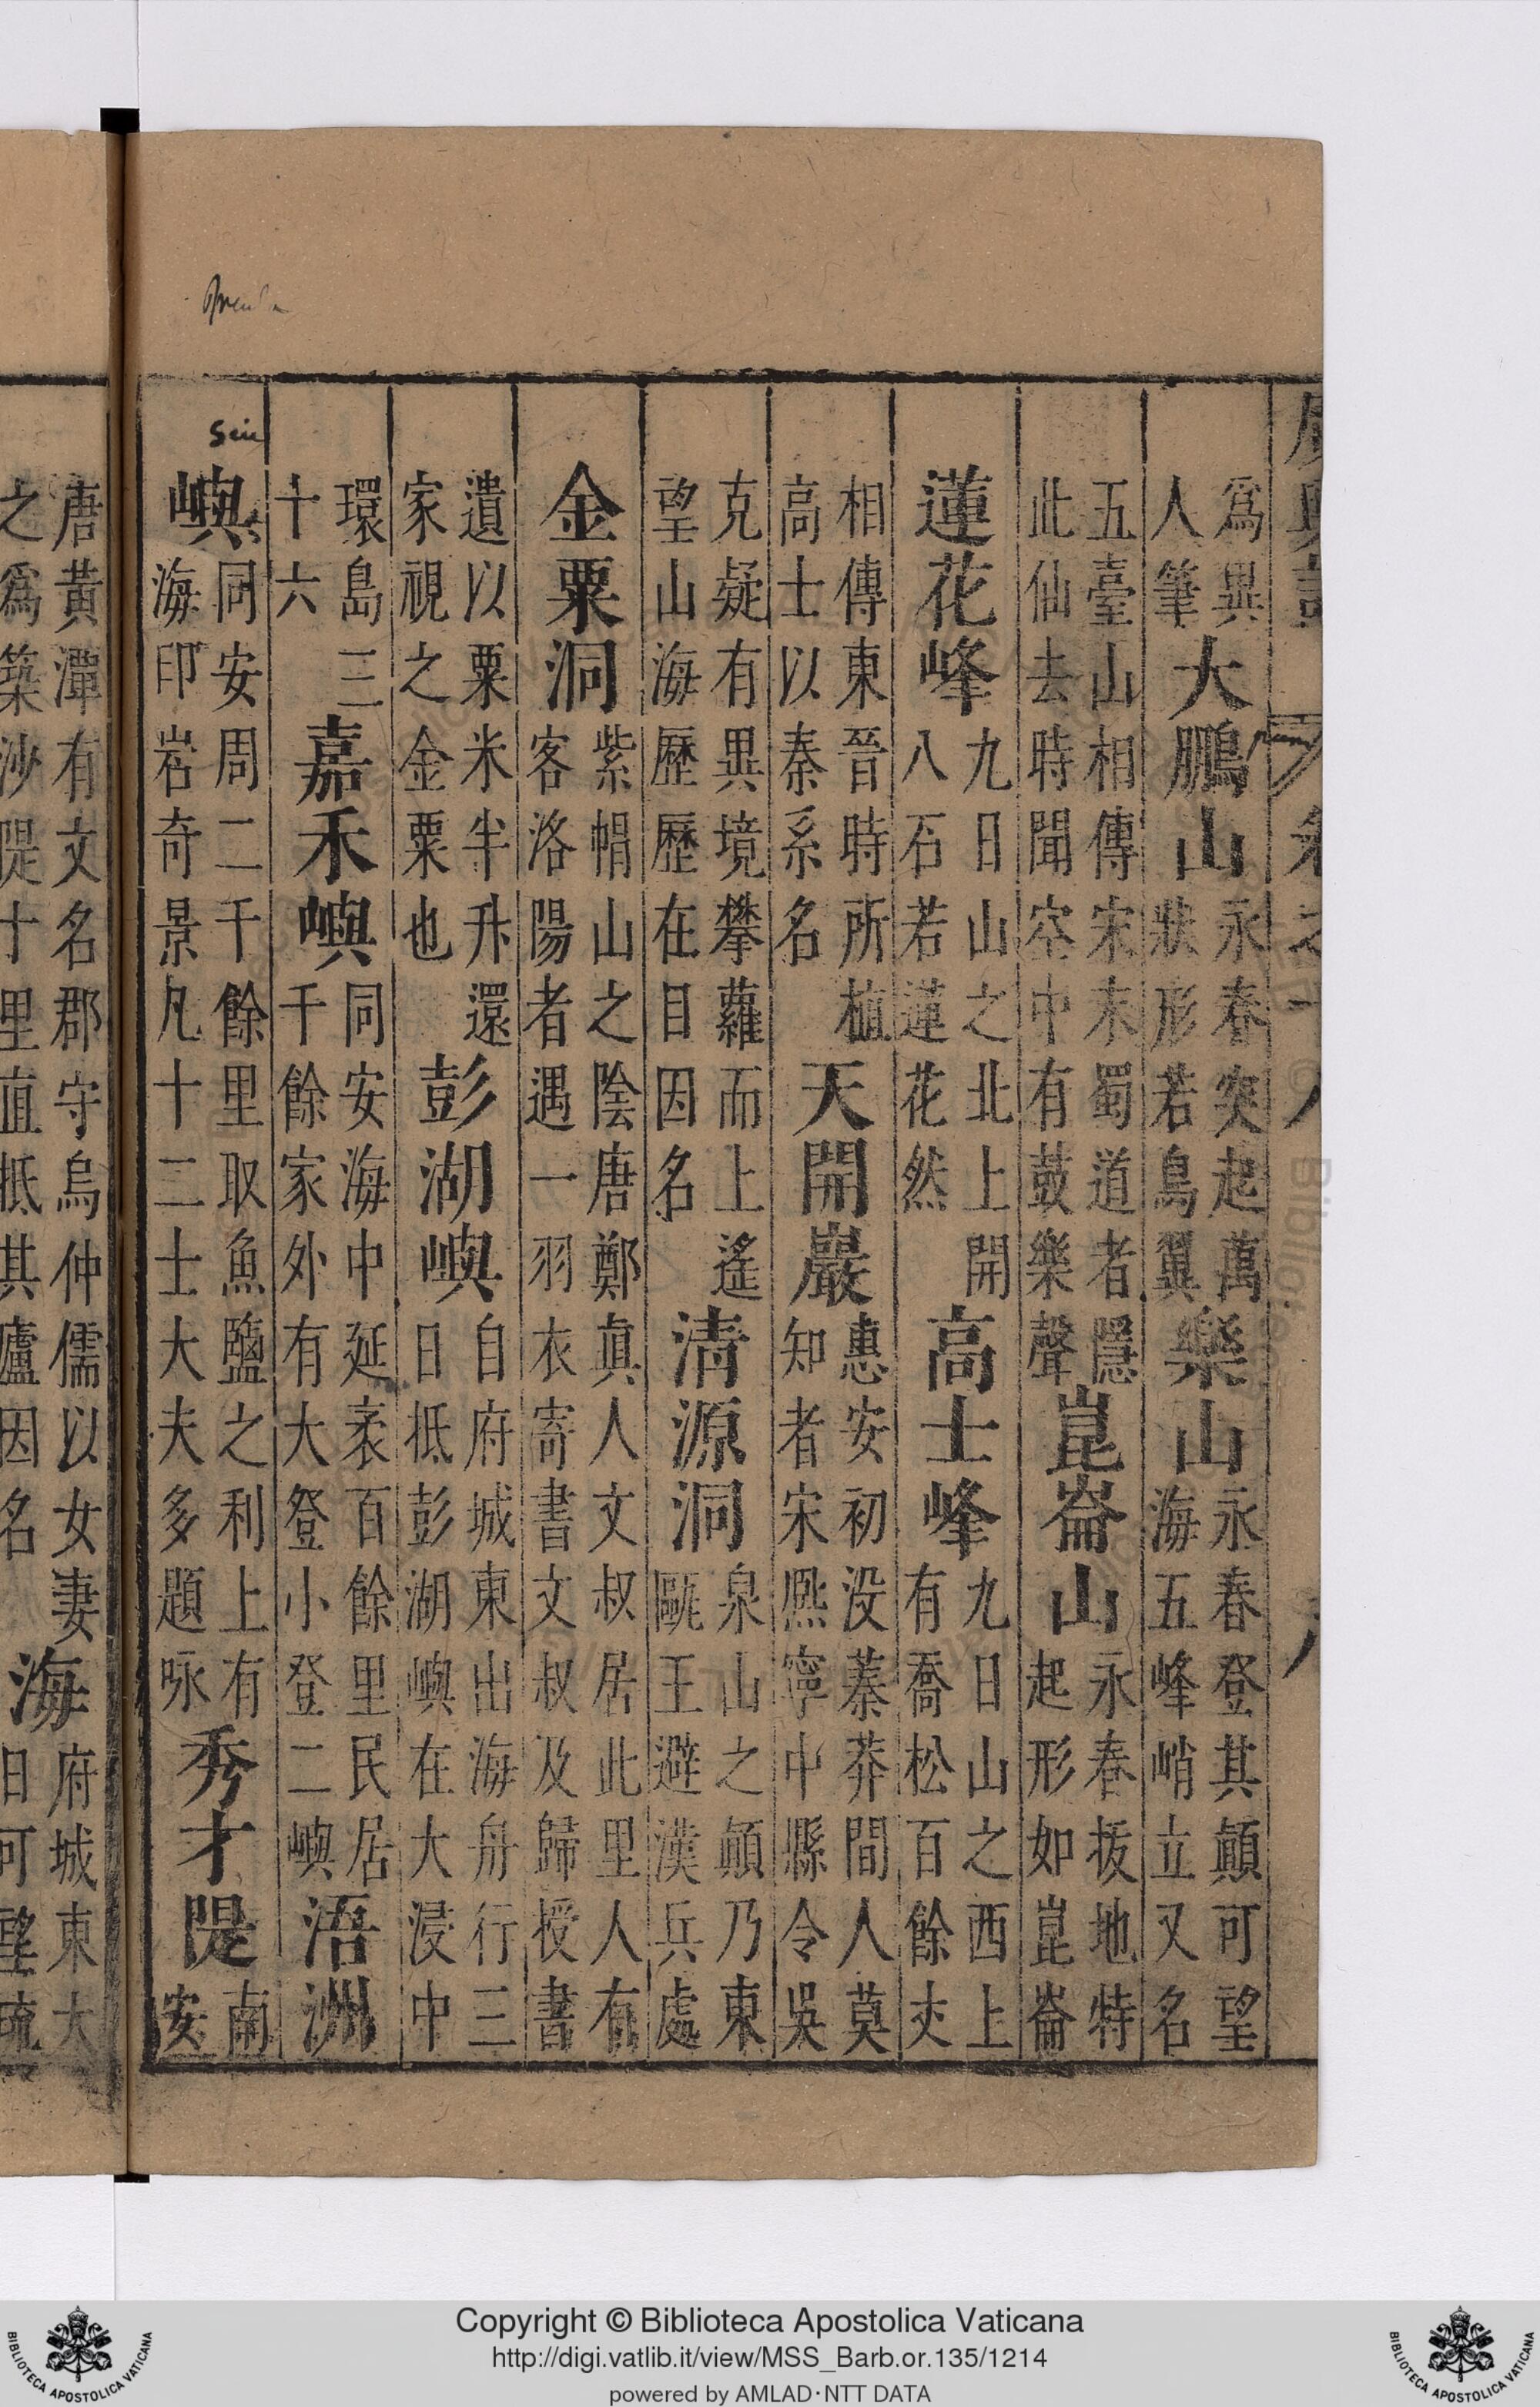 卷之十八
爲異人筆大鵬山永春突起萬狀形若鳥翼樂山永春登其顛可望海五峰峭立又名
五臺山相傳宋末蜀道者隱此仙去時聞空中有鼓樂聲崑崙山永春拔地特起形如崑崙
蓮花峰九日山之北上開八石若蓮花然高士峰九日山之西上有喬松百餘夾
相傳東晉時所植高士以秦系名天開巖惠安初没蓁莽間人莫知者宋熈寧中縣令吳
克疑有異境攀蘿而上遙望山海歷歷在目因名清源洞泉山之顛乃東甌王避漢兵處
金粟洞紫帽山之陰唐鄭眞人文叔居此里人有客洛陽者遇一羽衣寄書文叔及歸授書
遺以粟米半升還家視之金粟也彭湖嶼自府城東出海舟行三日抵彭湖嶼在大浸中
環島三十六嘉禾嶼同安海中延袤百餘里民居千餘家外有大登小登二嶼浯洲
siu
嶼同安周二千餘里取魚鹽之利上有海印岩奇景凡十二士大夫多題咏秀才隄南安
唐黃潭有文名郡守烏仲儒以女妻之爲築沙隄十里直抵其廬因名海府城東大日可望琉
Copyright © Biblioteca Apostolica Vaticana
http://digi.vatlib.it/view/MSS_Barb.or.135/1214
powered by AMLAD·NTT DATA
BIBLIOTECA APOSTOLICA VATICANA
BIBLIOTECA APOSTOLICA VATICANA